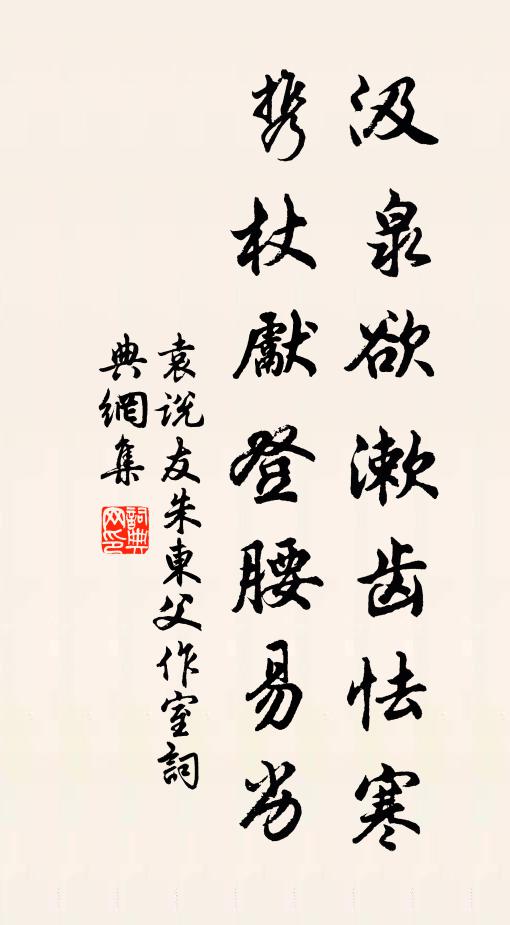 汲泉欲漱齿怯寒
携杖巘登腰易劳
袁说友朱東父作室詞
典網集
詞典网印